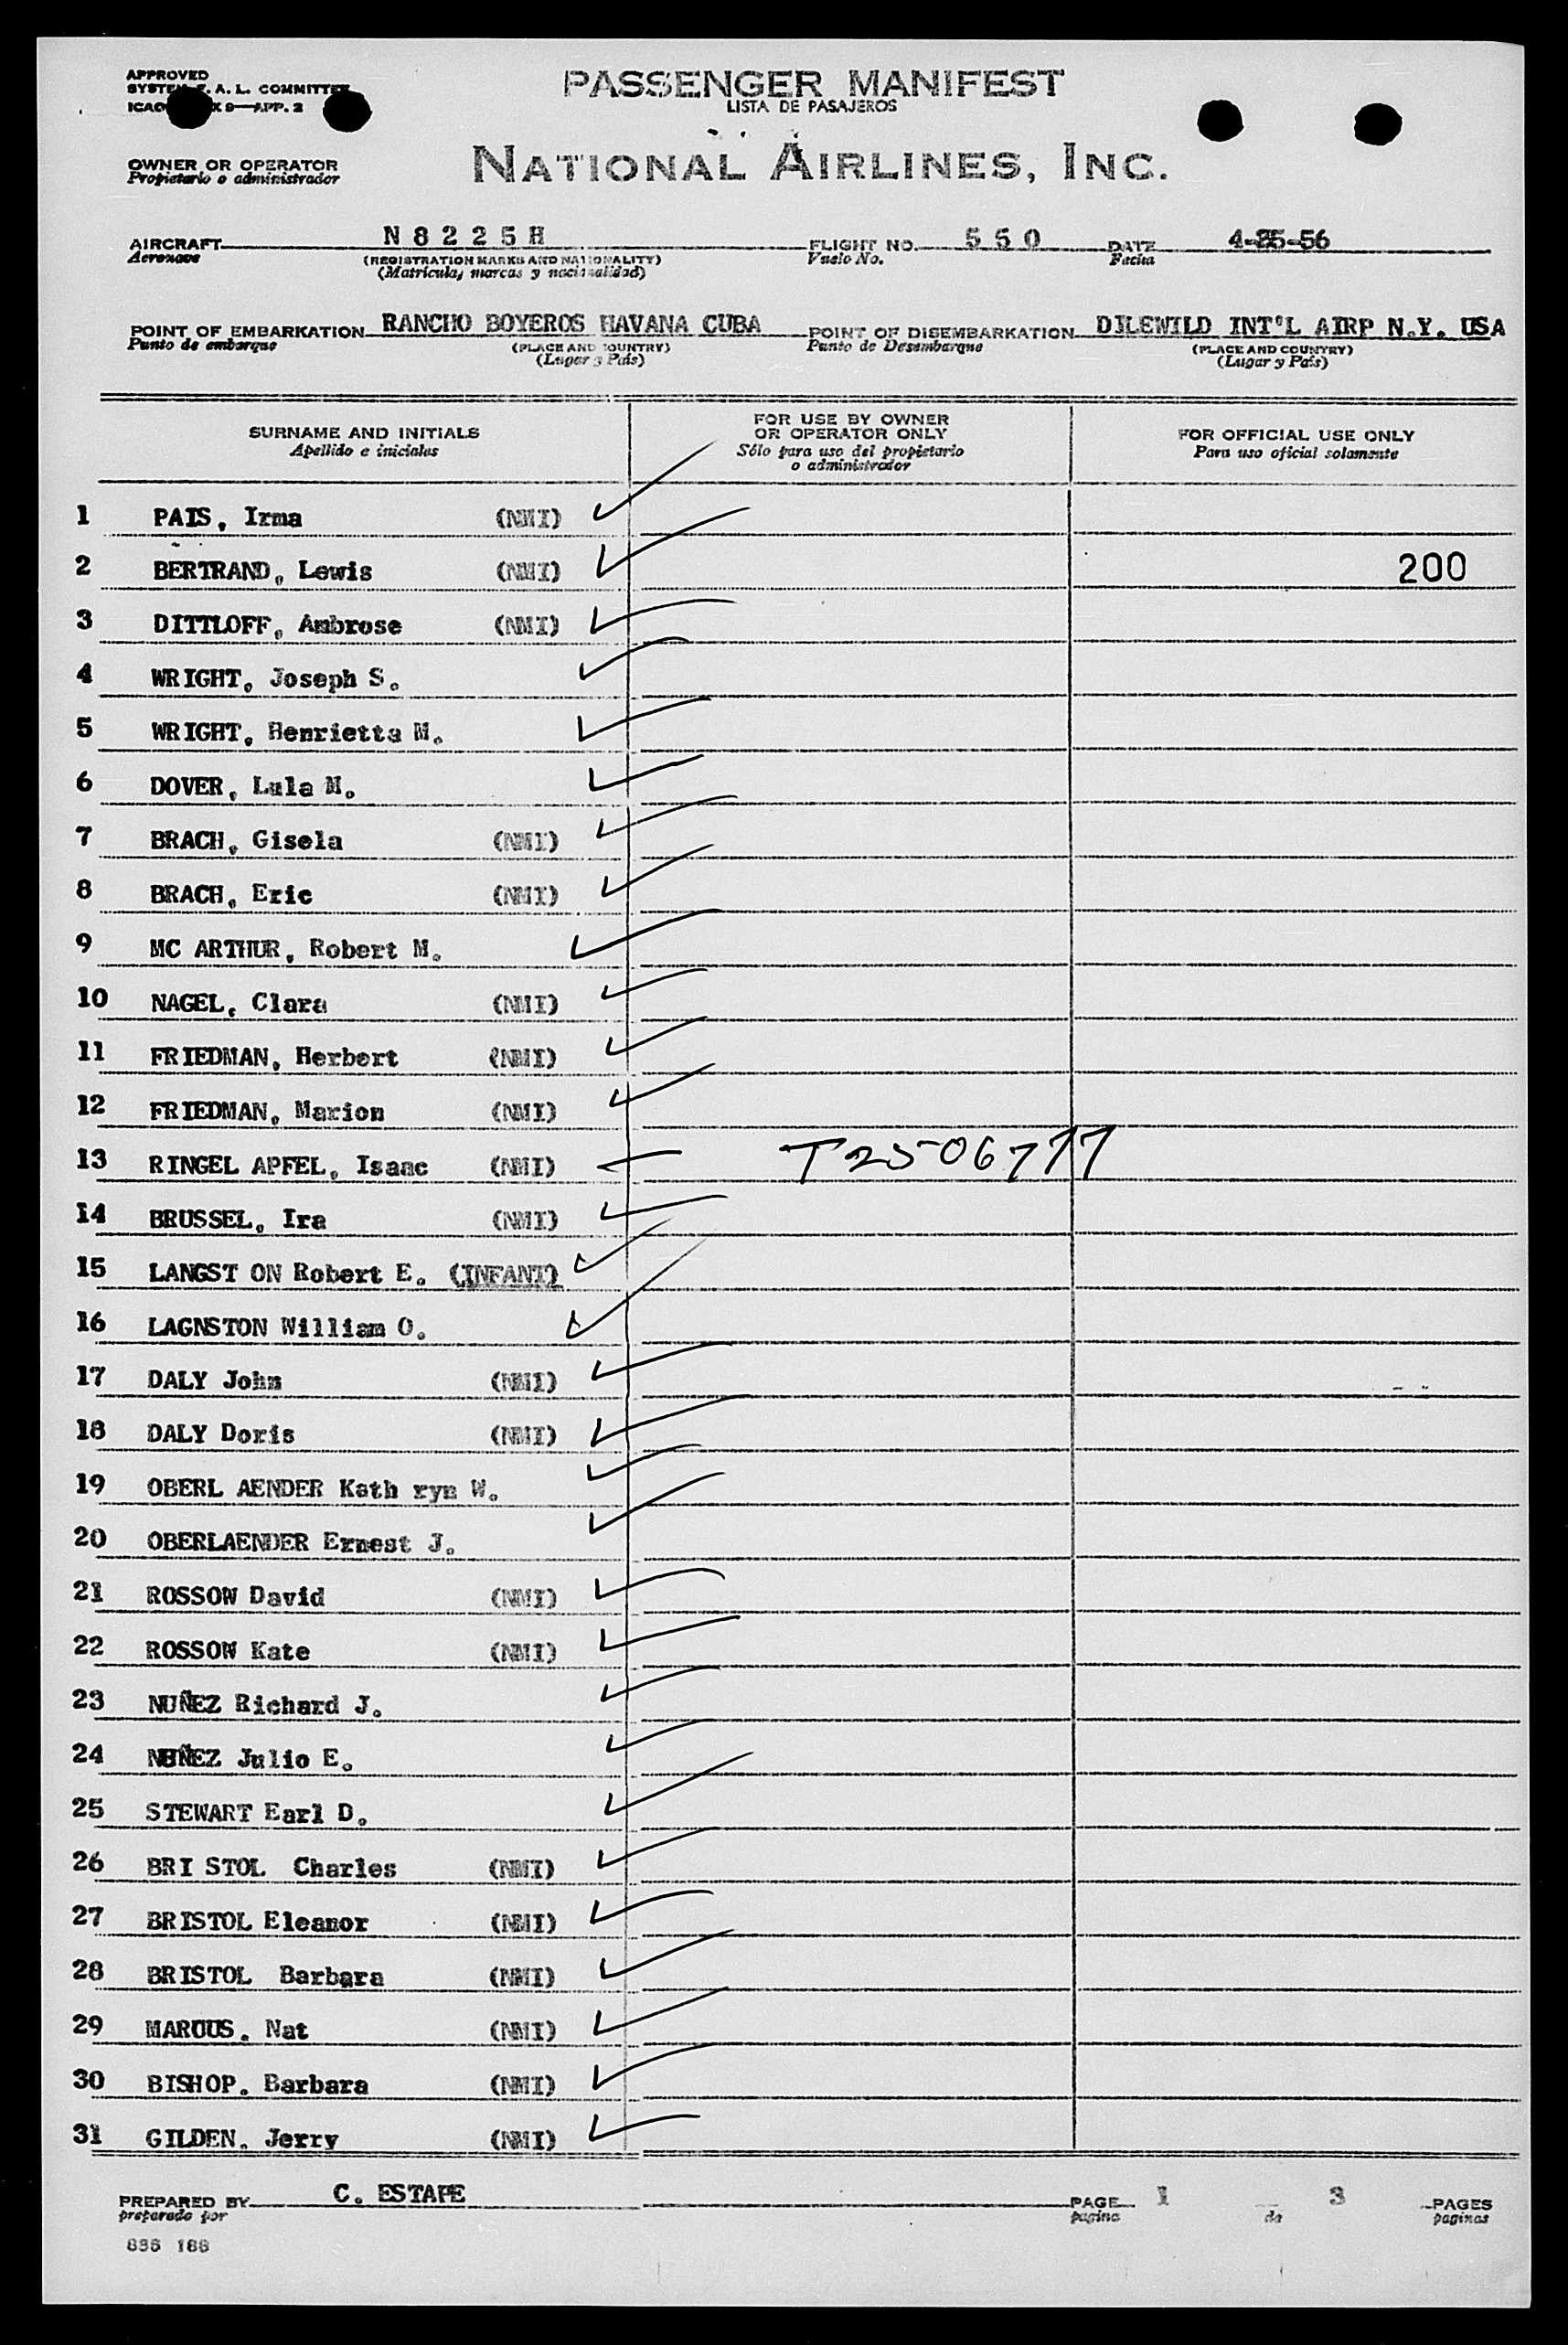 APPROVED
SYSTEM F. A. L. COMMITTEE
ICAO X 9—APP. 2
PASSENGER MANIFEST
LISTA DE PASAJEROS
OWNER OR OPERATOR
Propietario o administrador
NATIONAL AIRLINES, INC.
AIRCRAFT N 8 2 2 5 H FLIGHT NO. 5 5 0 DATE 4-25-56
Aeronave (REGISTRATION MARKS AND NATIONALITY) Vuelo No. Fecha
(Matricula, marcas y nacionalidad)
POINT OF EMBARKATION RANCHO BOYEROS HAVANA CUBA POINT OF DISEMBARKATION DILEWILD INT'L AIRP N.Y. USA
Punto de embarque (PLACE AND COUNTRY) Punto de Desembarque (PLACE AND COUNTRY)
(Lugar y País) (Lugar y País)
SURNAME AND INITIALS FOR USE BY OWNER OR OPERATOR ONLY FOR OFFICIAL USE ONLY
Apellido e iniciales Sólo para uso del propietario o administrador Para uso oficial solamente
1 PAIS, Irma (NMI)
2 BERTRAND, Lewis (NMI) 200
3 DITTLOFF, Ambrose (NMI)
4 WRIGHT, Joseph S.
5 WRIGHT, Henrietta M.
6 DOVER, Lula M.
7 BRACH, Gisela (NMI)
8 BRACH, Eric (NMI)
9 MC ARTHUR, Robert M.
10 NAGEL, Clara (NMI)
11 FRIEDMAN, Herbert (NMI)
12 FRIEDMAN, Marion (NMI)
13 RINGEL APFEL, Isaac (NMI) T2506777
14 BRUSSEL, Ira (NMI)
15 LANGST ON Robert E. (INFANT)
16 LAGNSTON William O.
17 DALY John (NMI)
18 DALY Doris (NMI)
19 OBERL AENDER Kath ryn W.
20 OBERLAENDER Ernest J.
21 ROSSOW David (NMI)
22 ROSSOW Kate (NMI)
23 NUÑEZ Richard J.
24 NUÑEZ Julio E.
25 STEWART Earl D.
26 BRI STOL Charles (NMI)
27 BRISTOL Eleanor (NMI)
28 BRISTOL Barbara (NMI)
29 MARCUS. Nat (NMI)
30 BISHOP. Barbara (NMI)
31 GILDEN. Jerry (NMI)
PREPARED BY C. ESTAPE PAGE 1 3 PAGES
preparado por pagina de paginas
836 188